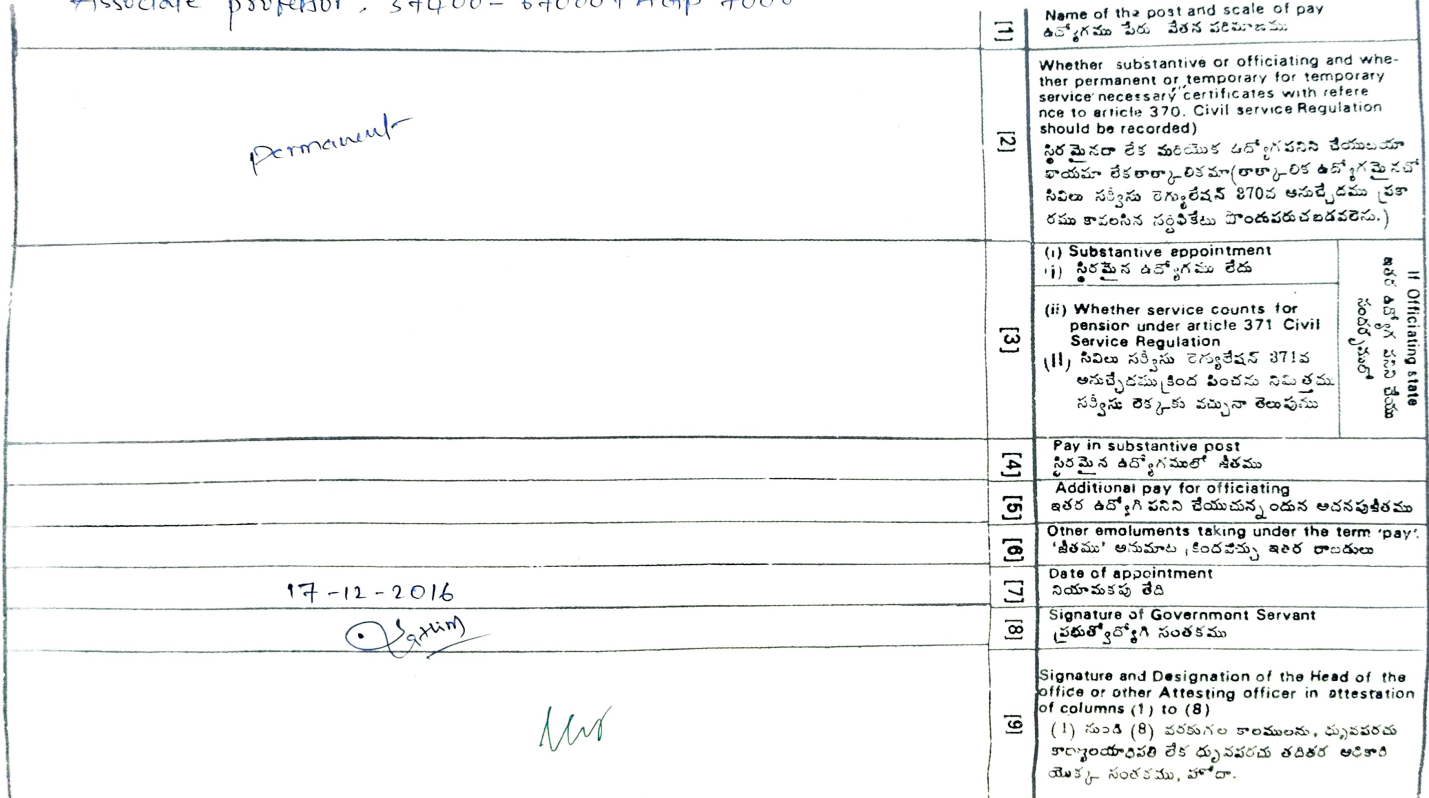 Associate professor, 37400 - 67000 + AGP 9000
[1]
Name of the post and scale of pay
ఉద్యోగము పేరు వేతన పరిమాణము
permanent
[2]
Whether substantive or officiating and whe-
ther permanent or temporary for temporary
service necessary certificates with refere
nce to article 370. Civil service Regulation
should be recorded)
స్థిరమైనదా లేక మరియొక ఉద్యోగపనిని చేయుటయా
ఖాయమా లేక తాత్కాలికమా (తాత్కాలిక ఉద్యోగమైనచో
సివిలు సర్వీసు రెగ్యులేషన్ 370వ అనుచ్ఛేదము ప్రకా
రము కావలసిన సర్టిఫికేటు పొందుపరుచబడవలెను.)
[3]
(i) Substantive appointment
i) స్థిరమైన ఉద్యోగము లేదు
(ii) Whether service counts for
pension under article 371 Civil
Service Regulation
(II) సివిలు సర్వీసు రెగ్యులేషన్ 371వ
అనుచ్ఛేదము క్రింద పించను నిమిత్తము
సర్వీసు లెక్కకు వచ్చునా తెలుపుము
If Officiating state
ఇతర ఉద్యోగ పనిని చేయు
[4]
Pay in substantive post
స్థిరమైన ఉద్యోగములో జీతము
[5]
Additional pay for officiating
ఇతర ఉద్యోగి పనిని చేయుచున్నందున అదనపుజీతము
[6]
Other emoluments taking under the term 'pay'.
'జీతము' అనుమాట క్రిందవచ్చు ఇతర రాబడులు
17-12-2016
[7]
Date of appointment
నియామకపు తేది
[8]
Signature of Government Servant
ప్రభుత్వోద్యోగి సంతకము
[9]
Signature and Designation of the Head of the
office or other Attesting officer in attestation
of columns (1) to (8)
(1) నుండి (8) వరకుగల కాలములను, ధృవపరచు
కార్యాలయాధిపతి లేక ధృవపరచు తదితర అధికారి
యొక్క సంతకము, హోదా.